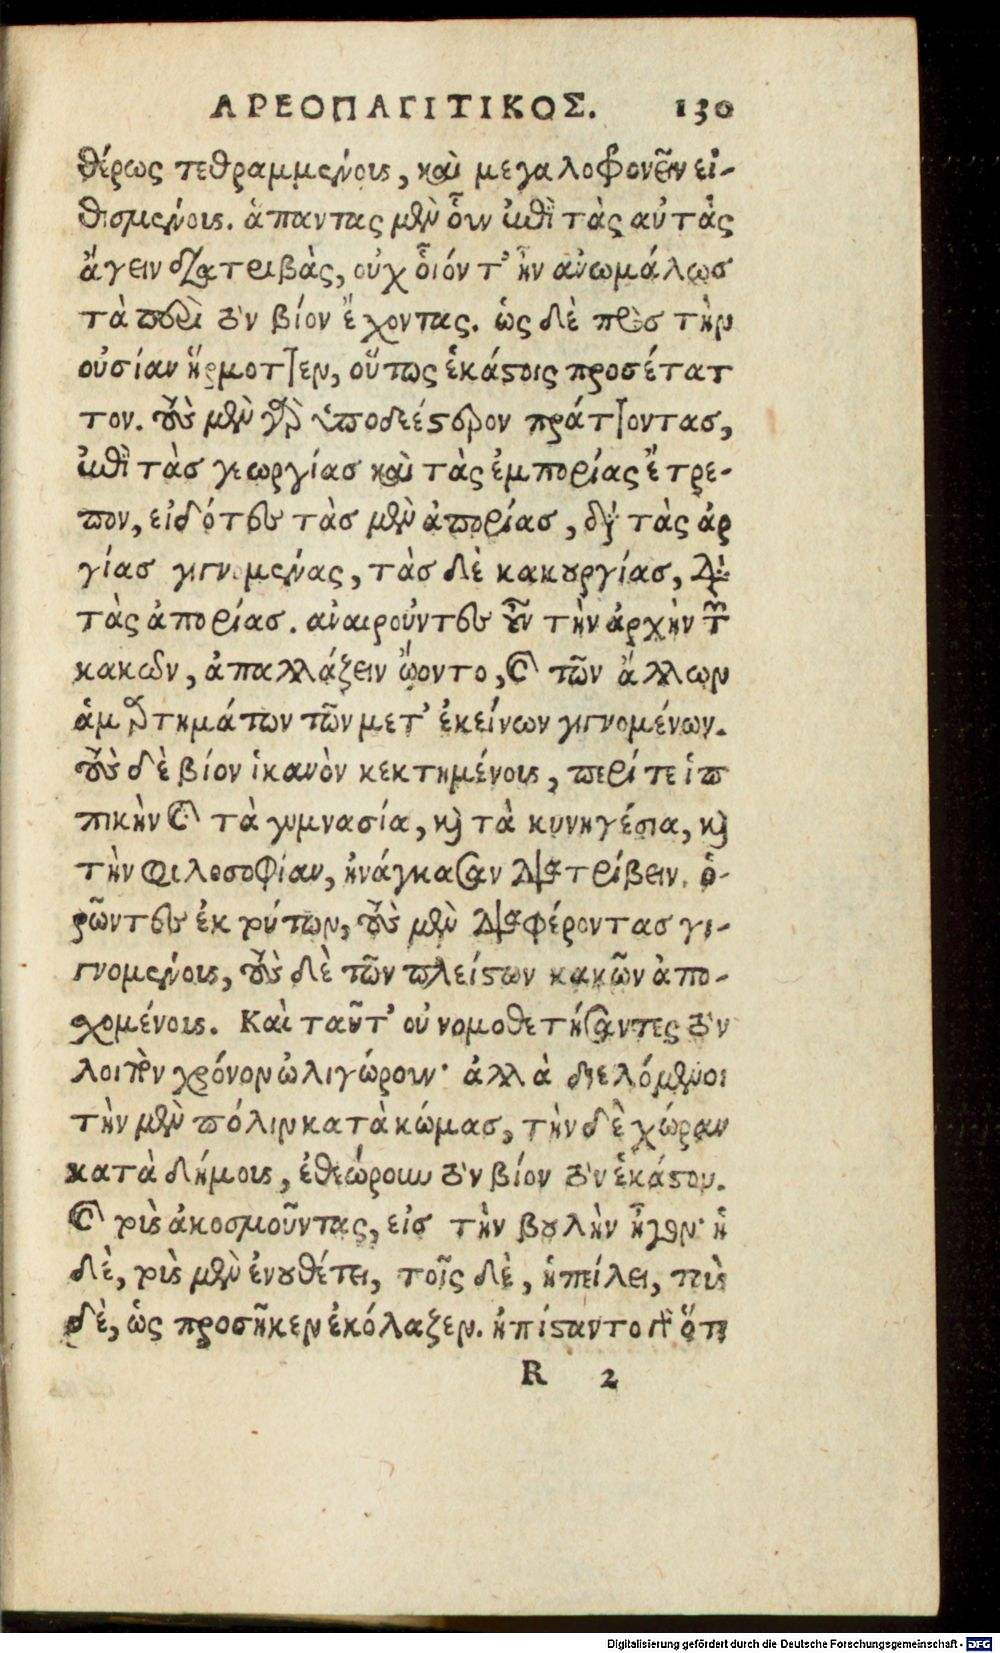 ΑΡΕΟΠΑΓΙΤΙΚΟΣ. 130
θέρως τεθραμμένοις, καὶ μεγαλοφρονεῖν εἰ-
θισμένοις. ἅπαντας μὲν οὖν ἐπὶ τὰς αὐτὰς
ἄγειν διατριβὰς, οὐχ οἷόν τ' ἦν ἀνωμάλως
τὰ περὶ τὸν βίον ἔχοντας. ὡς δὲ πρὸς τὴν
οὐσίαν ἥρμοττεν, οὕτως ἑκάστοις προσέτατ
τον. τοὺς μὲν γὰρ ὑποδεέστερον πράττοντας,
ἐπὶ τὰς γεωργίας καὶ τὰς ἐμπορίας ἔτρε-
πον, εἰδότες τὰς μὲν ἀπορίας, διὰ τὰς ἀρ
γίας γιγνομένας, τὰς δὲ κακουργίας, διὰ
τὰς ἀπορίας. ἀναιροῦντες οὖν τὴν ἀρχὴν τῶν
κακῶν, ἀπαλλάξειν ᾤοντο, καὶ τῶν ἄλλων
ἁμαρτημάτων τῶν μετ' ἐκείνων γιγνομένων.
τοὺς δὲ βίον ἱκανὸν κεκτημένους, περί τε ἱπ
πικὴν καὶ τὰ γυμνασία, καὶ τὰ κυνηγέσια, καὶ
τὴν φιλοσοφίαν, ἠνάγκασαν διατρίβειν. ὁ-
ρῶντες ἐκ τούτων, τοὺς μὲν διαφέροντας γι-
γνομένους, τοὺς δὲ τῶν πλείστων κακῶν ἀπο-
χομένους. Καὶ ταῦτ' οὐ νομοθετήσαντες τὸν
λοιπὸν χρόνον ὠλιγώρουν· ἀλλὰ διελόμενοι
τὴν μὲν πόλιν κατὰ κώμας, τὴν δὲ χώραν
κατὰ δήμους, ἐθεώρουν τὸν βίον τὸν ἑκάστου.
καὶ τοὺς ἀκοσμοῦντας, εἰς τὴν βουλὴν ἦγον· ἡ
δὲ, τοὺς μὲν ἐνουθέτει, τοῖς δὲ, ἠπείλει, τοὺς
δὲ, ὡς προσῆκεν ἐκόλαζεν. ἠπίσταντο γὰρ ὅτι
R 2
Digitalisierung gefördert durch die Deutsche Forschungsgemeinschaft - DFG